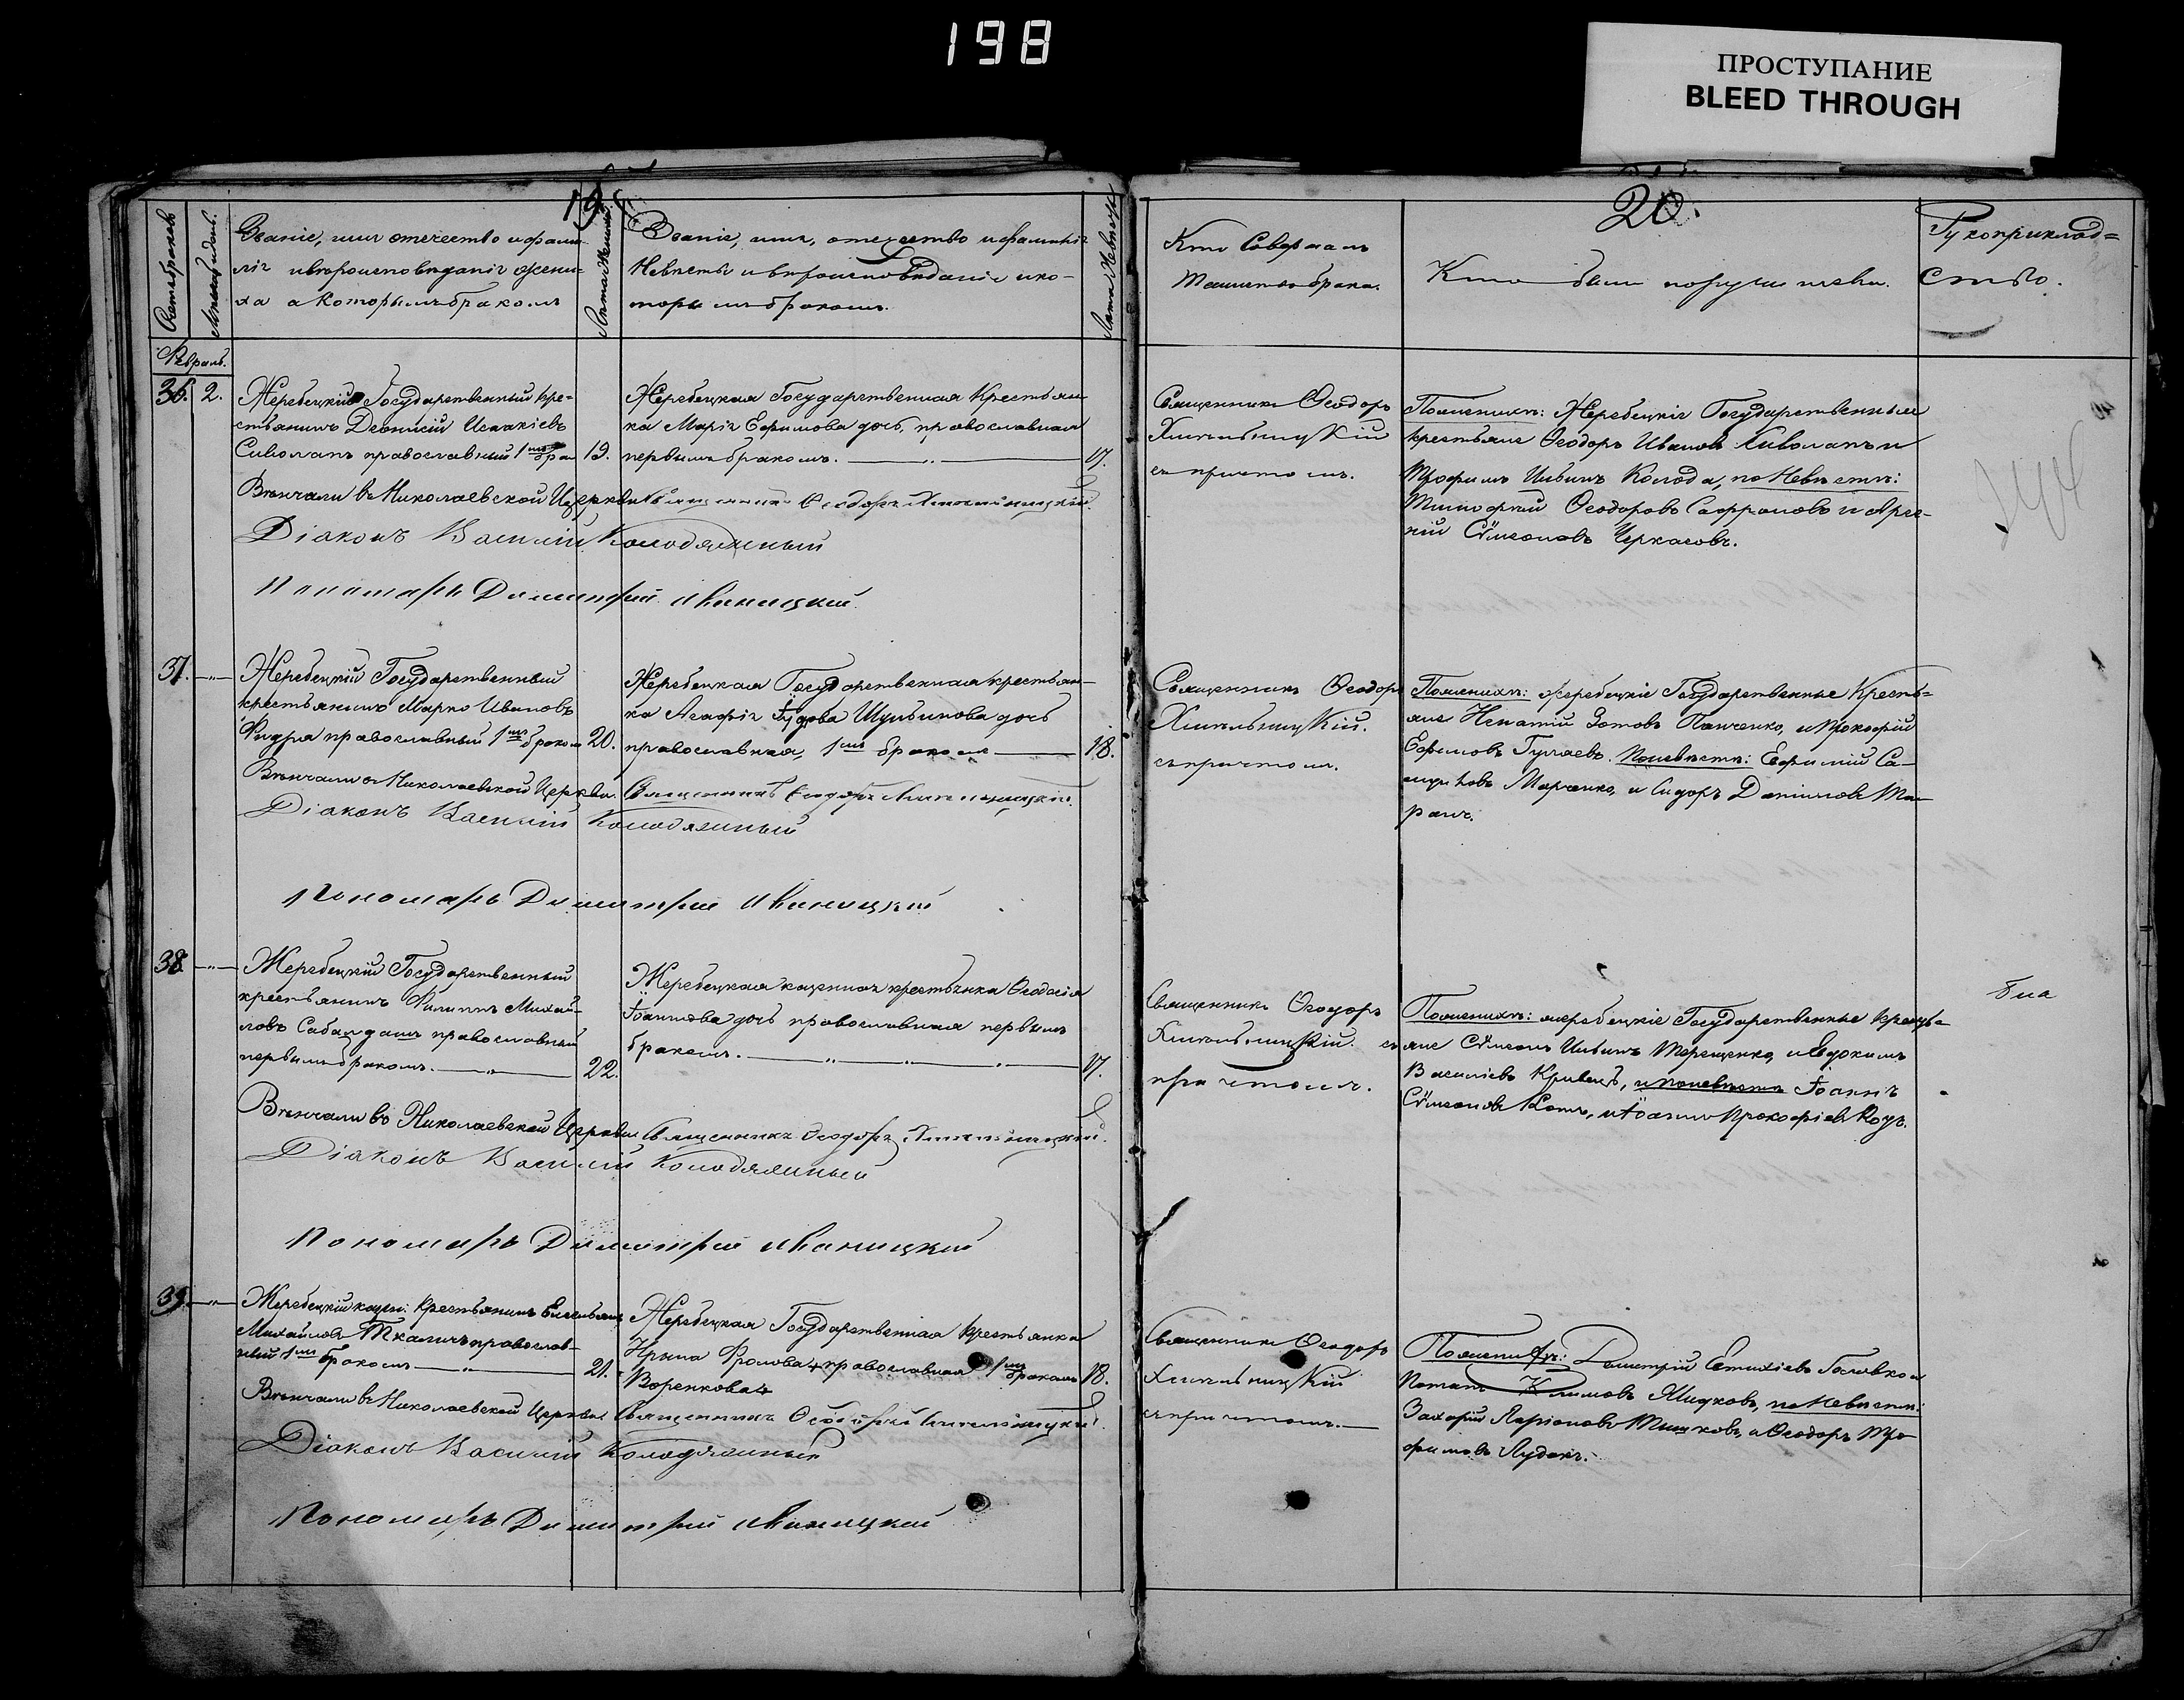 198
ПРОСТУПАНИЕ
BLEED THROUGH
19
Счетъ браковъ
Мѣсяцъ и день.
Званіе, имя отечество и фами-
лія и вѣроисповѣданіе жени-
ха и которымъ бракомъ
Лѣта жениха
Званіе, имя, отечество и фамилія
Невѣсты и вѣроисповѣданіе и ко-
торымъ бракомъ.
Лѣта Невѣсты
Февраль.
36. 2. Жеребецкій Государственный кре-
стьянинъ Діонисій Исаакіевъ
Сиволапъ православный 1мъ бра 19.
Жеребецкая Государственная Крестьян
ка Марія Ефимова дочь, православная
первымъ бракомъ. 17.
Вѣнчали въ Николаевской Церкви Священникъ Ѳеодоръ Хмѣльницкій.
Діаконъ Василій Колодяжный
Пономарь Димитрій Иваницкій
37. Жеребецкій Государственный
крестьянинъ Марко Ивановъ
православный 1мъ бракомъ 20.
Жеребецкая Государственная крестьян-
ка Агафія Шульчинова дочь
православная, 1мъ бракомъ 18.
Вѣнчали в Николаевской Церкви. Священникъ Ѳеодоръ Хмѣльницкій.
Діаконъ Василій Колодяжный
Пономарь Димитрій Иваницкій
38. Жеребецкій Государственный
крестьянинъ Филиппъ Михай-
ловъ Сабадашъ православный
первымъ бракомъ. 22.
Жеребецкая казенная крестьянка Ѳеодосія
Іоаннова дочь православная первымъ
бракомъ. 17.
Вѣнчали въ Николаевской Церкви Священникъ Ѳеодоръ Хмѣльницкій.
Діаконъ Василій Колодяжный
Пономарь Димитрій Иваницкій
39. Жеребецкій казен: крестьянинъ Емельянъ
Михайловъ Ткаличъ православ-
ный 1мъ бракомъ 21.
Жеребецкая Государственная крестьянка
Ирина Фролова православная 1мъ бракомъ 18.
Воренкова
Вѣнчали въ Николаевской Церкви Священникъ Ѳеодоръ Хмѣльницкій.
Діаконъ Василій Колодяжный
Пономарь Димитрій Иваницкій
20.
Кто Совершалъ
Таинство брака.
Кто были поручители.
Рукоприклад=
ство.
Священникъ Ѳеодоръ
Хмѣльницкій
съ причтомъ.
Поженихѣ: Жеребецкіе Государственные
крестьяне Ѳеодоръ Ивановъ Сиволапъ и
Трофимъ Ильинъ Колода, по Невѣстѣ:
Тимофей Ѳеодоровъ Сафроновъ и Арсе-
ній Сѵмеоновъ Черкасовъ.
Священникъ Ѳеодоръ
Хмѣльницкій.
съ причтомъ.
Поженихѣ: жеребецкіе Государственные Кресть=
яне Игнатій Зотовъ Панченко, и Прокофій
Ефимовъ Гуляевъ. Поневѣстѣ: Ефимій Са-
Марченко, и Сидоръ Даніиловъ Та-
ранъ.
Священникъ Ѳеодоръ
Хмѣльницкій. съ
причтомъ.
Поженихѣ: жеребецкіе Государственные кресть-
яне Сѵмеонъ Ильинъ Терещенко, и Евдокимъ
Василіевъ Кривецъ, и поневѣстѣ Іоаннъ
Сѵмеоновъ Котъ, и Іоаннъ Прокофіевъ Коцъ.
Священникъ Ѳеодоръ
Хмѣльницкій
съ причтомъ.
Поженихѣ: Димитрій Евтихіевъ Головко и
Потапъ Климовъ Мишковъ, по Невѣстѣ:
Захарій Ларіоновъ Тишковъ, и Ѳеодоръ Тро-
фимовъ Лудакъ.